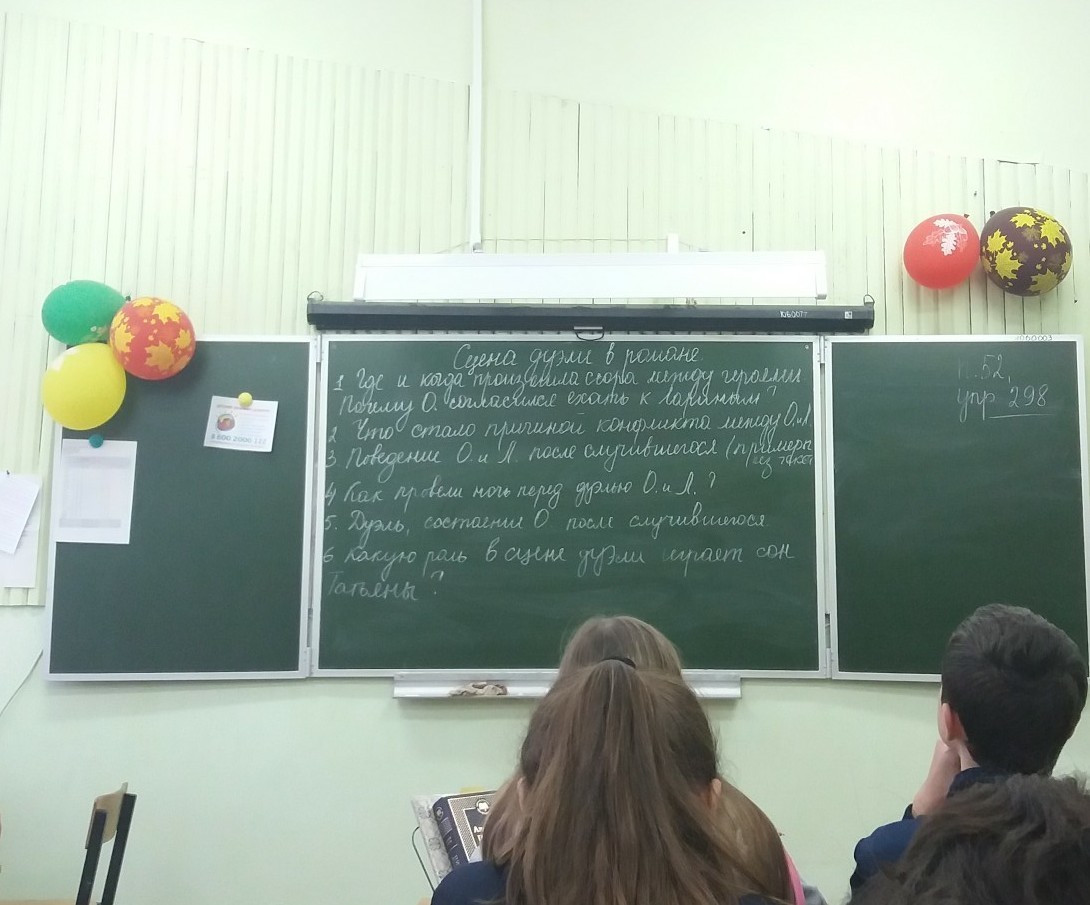 Сцена дуэли в романе.
1 Где и когда произошла ссора между героями
Почему О. согласился ехать к Лариным?
2 Что стало причиной конфликта между О. и Л.
3 Поведение О. и Л. после случившегося (примеры
из текст
4 Как провели ночь перед дуэлью О. и Л.?
5. Дуэль, состояние О. после случившегося
6 Какую роль в сцене дуэли играет сон
Татьяны?
п. 52,
упр 298
8 800 2000 122